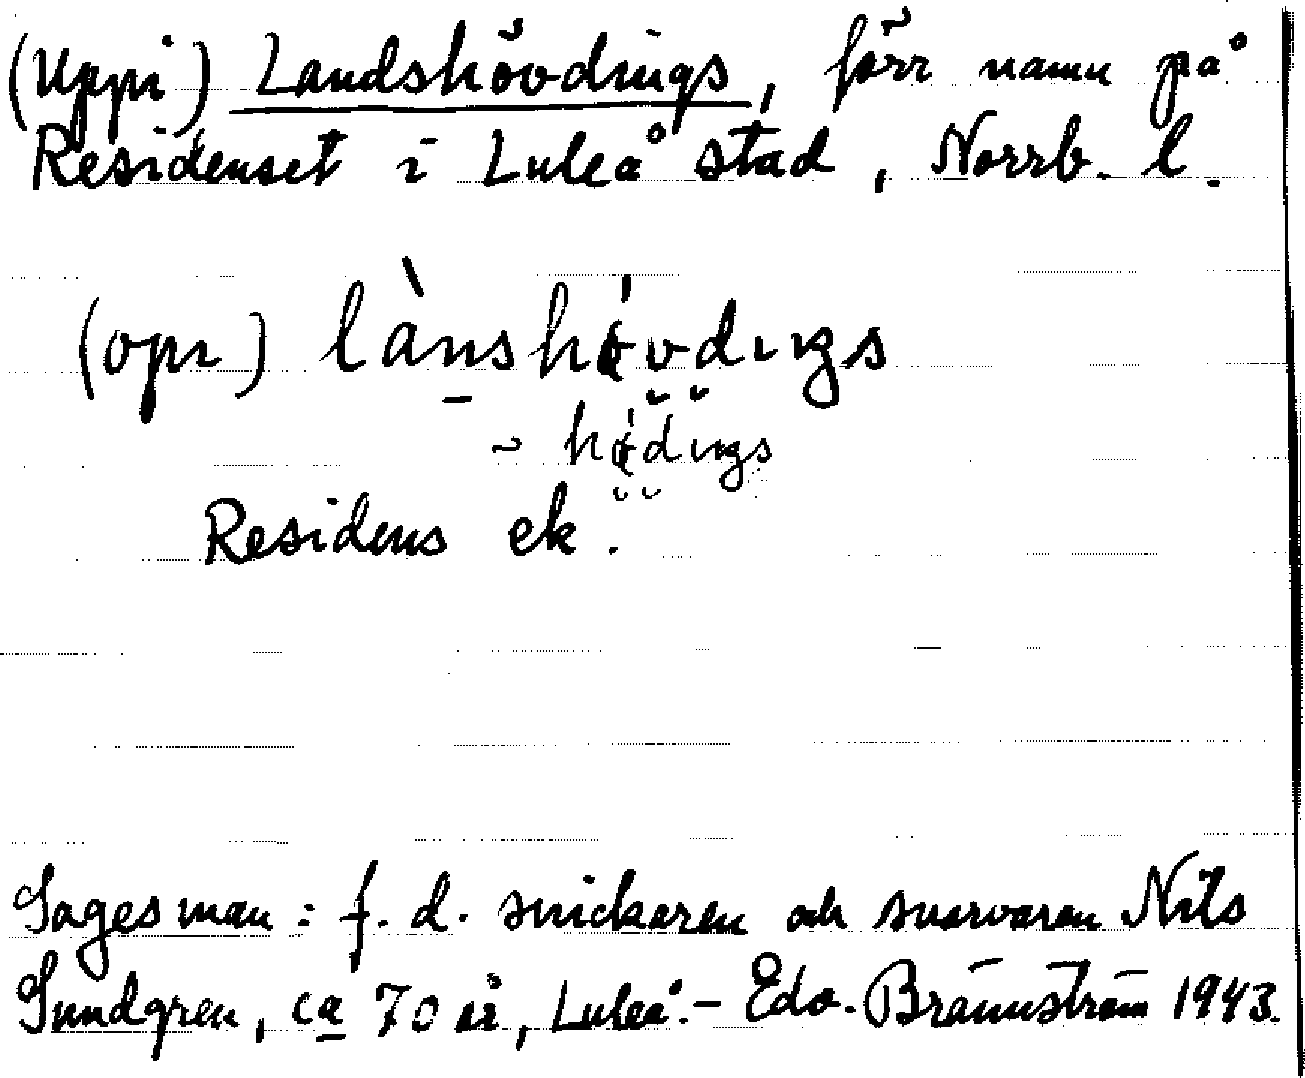 (Uppi) Landshövdings, förr namn på
Residenset i Luleå stad, Norrb. l.
(opr) lànshövdings
~ hödings
Residens ek.
Sagesman: f. d. snickaren och svarvaren Nils
Sundgren, ca 70 år, Luleå. - Edv. Brännström 1943.